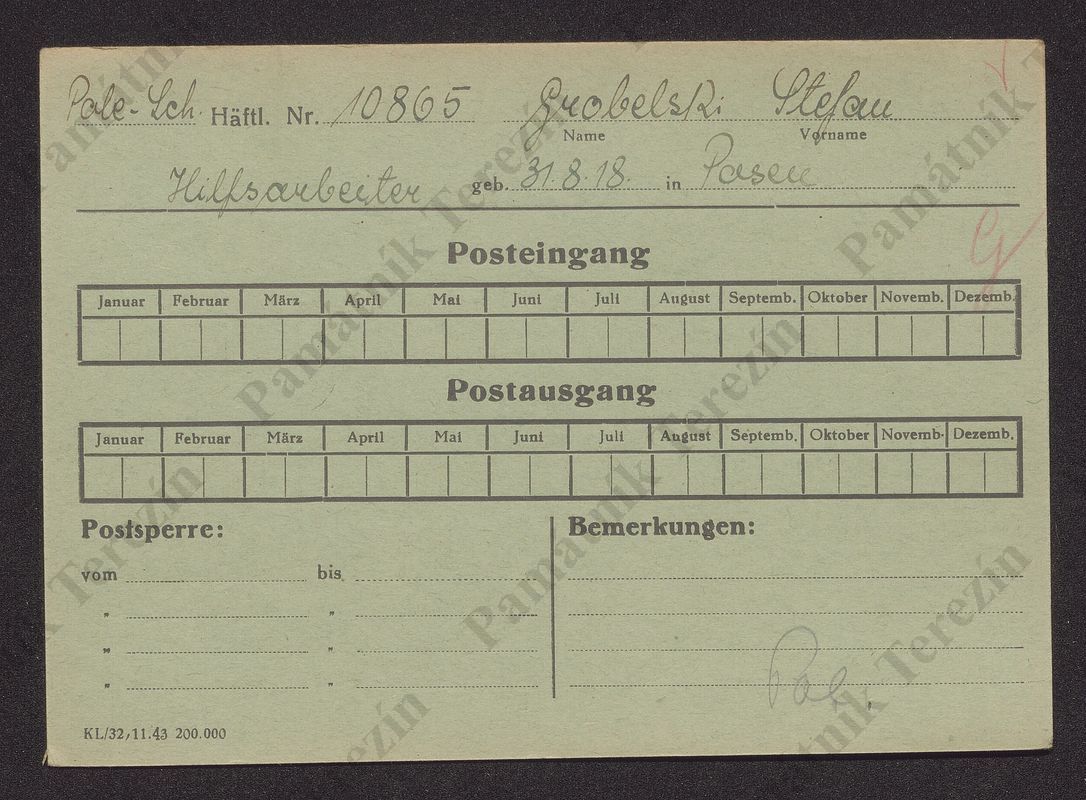 Pole-Sch. Häftl. Nr. 10865 Grobelski Stefan
Name Vorname
Hilfsarbeiter geb. 31.8.18. in Posen
G
Posteingang
Januar Februar März April Mai Juni Juli August Septemb. Oktober Novemb. Dezemb.
Postausgang
Januar Februar März April Mai Juni Juli August Septemb. Oktober Novemb. Dezemb.
Postsperre: Bemerkungen:
vom bis
" "
" "
" "
Pol.
KL/32, 11.43 200.000
Památník Terezín